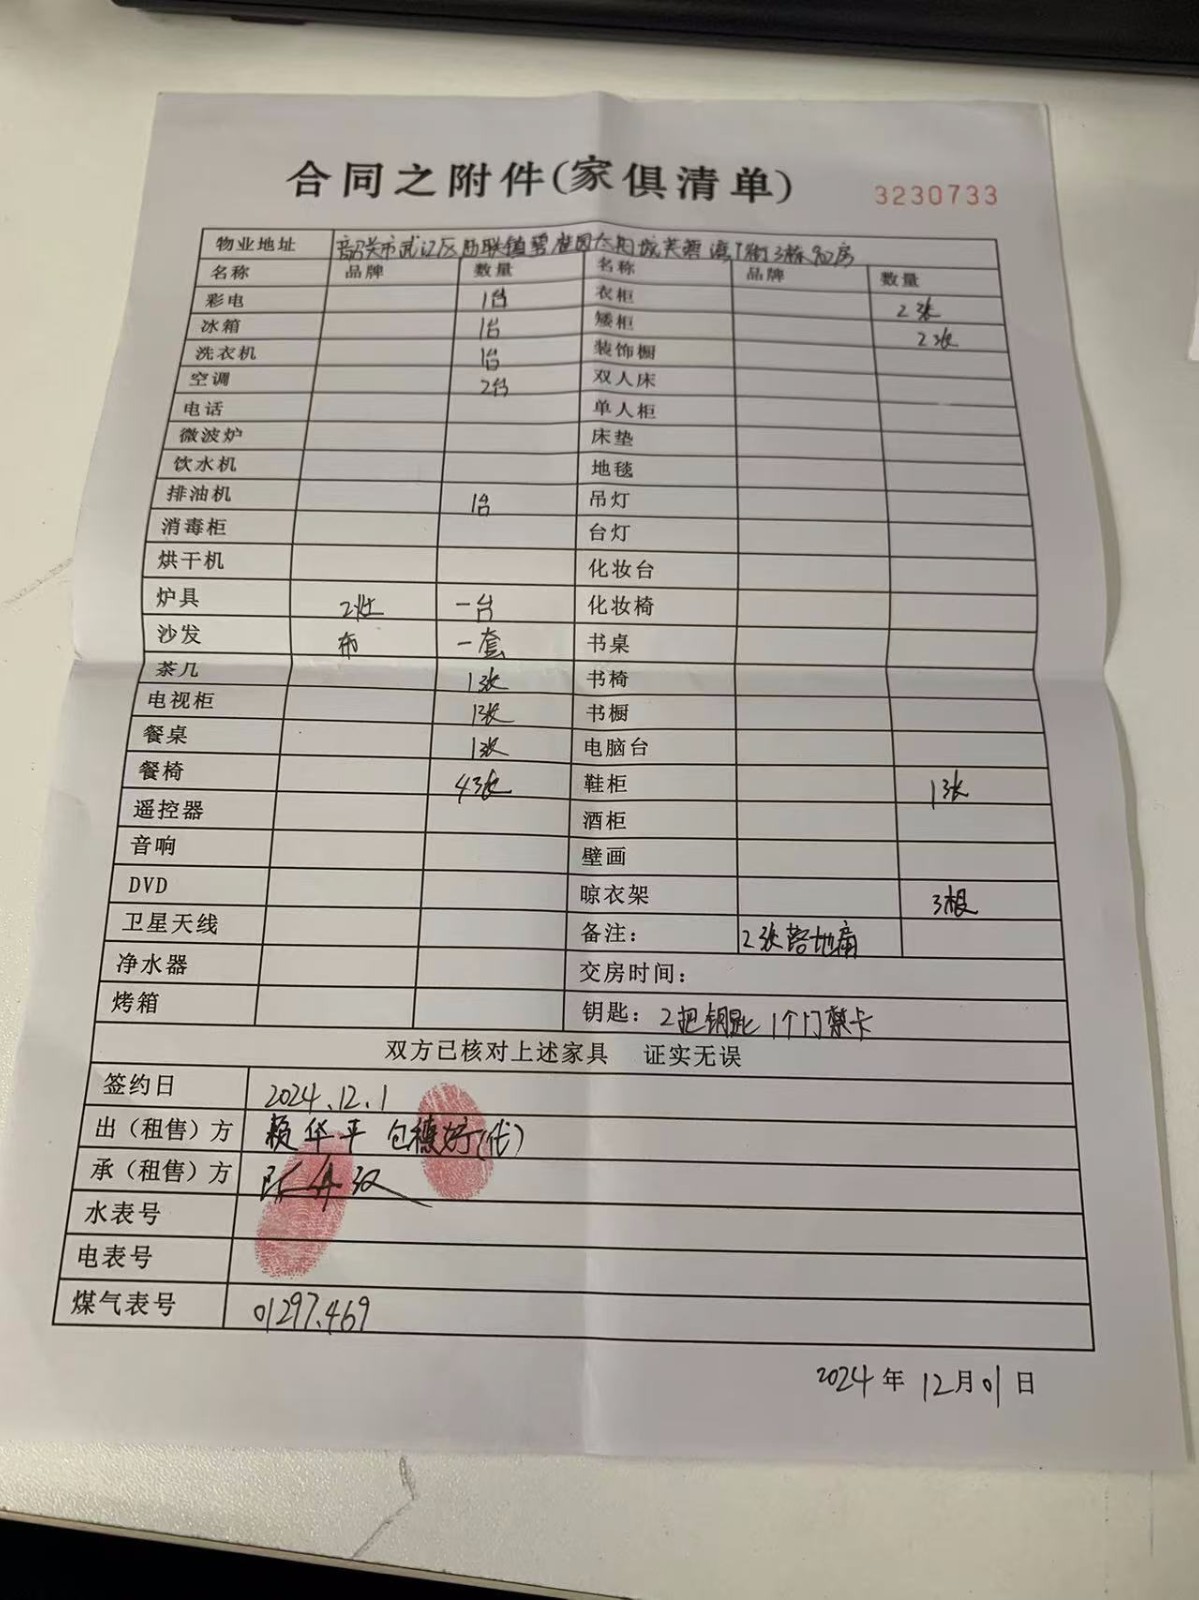 合同之附件(家俱清单) 3230733
物业地址 韶关市武江区西联镇碧桂园太阳城芙蓉湾1街3栋902房
名称 品牌 数量 名称 品牌 数量
彩电 1台 衣柜 2张
冰箱 1台 矮柜 2张
洗衣机 1台 装饰橱
空调 2台 双人床
电话 单人柜
微波炉 床垫
饮水机 地毯
排油机 1台 吊灯
消毒柜 台灯
烘干机 化妆台
炉具 2灶 一台 化妆椅
沙发 布 一套 书桌
茶几 1张 书椅
电视柜 1张 书橱
餐桌 1张 电脑台
餐椅 4张 鞋柜 1张
遥控器 酒柜
音响 壁画
DVD 晾衣架 3根
卫星天线 备注: 2张 地
净水器 交房时间:
烤箱 钥匙: 2把钥匙 1个门禁卡
双方已核对上述家具 证实无误
签约日 2024.12.1
出(租售)方 赖华平 包 好(代)
承(租售)方 陈
水表号
电表号
煤气表号 01297.469
2024年12月01日